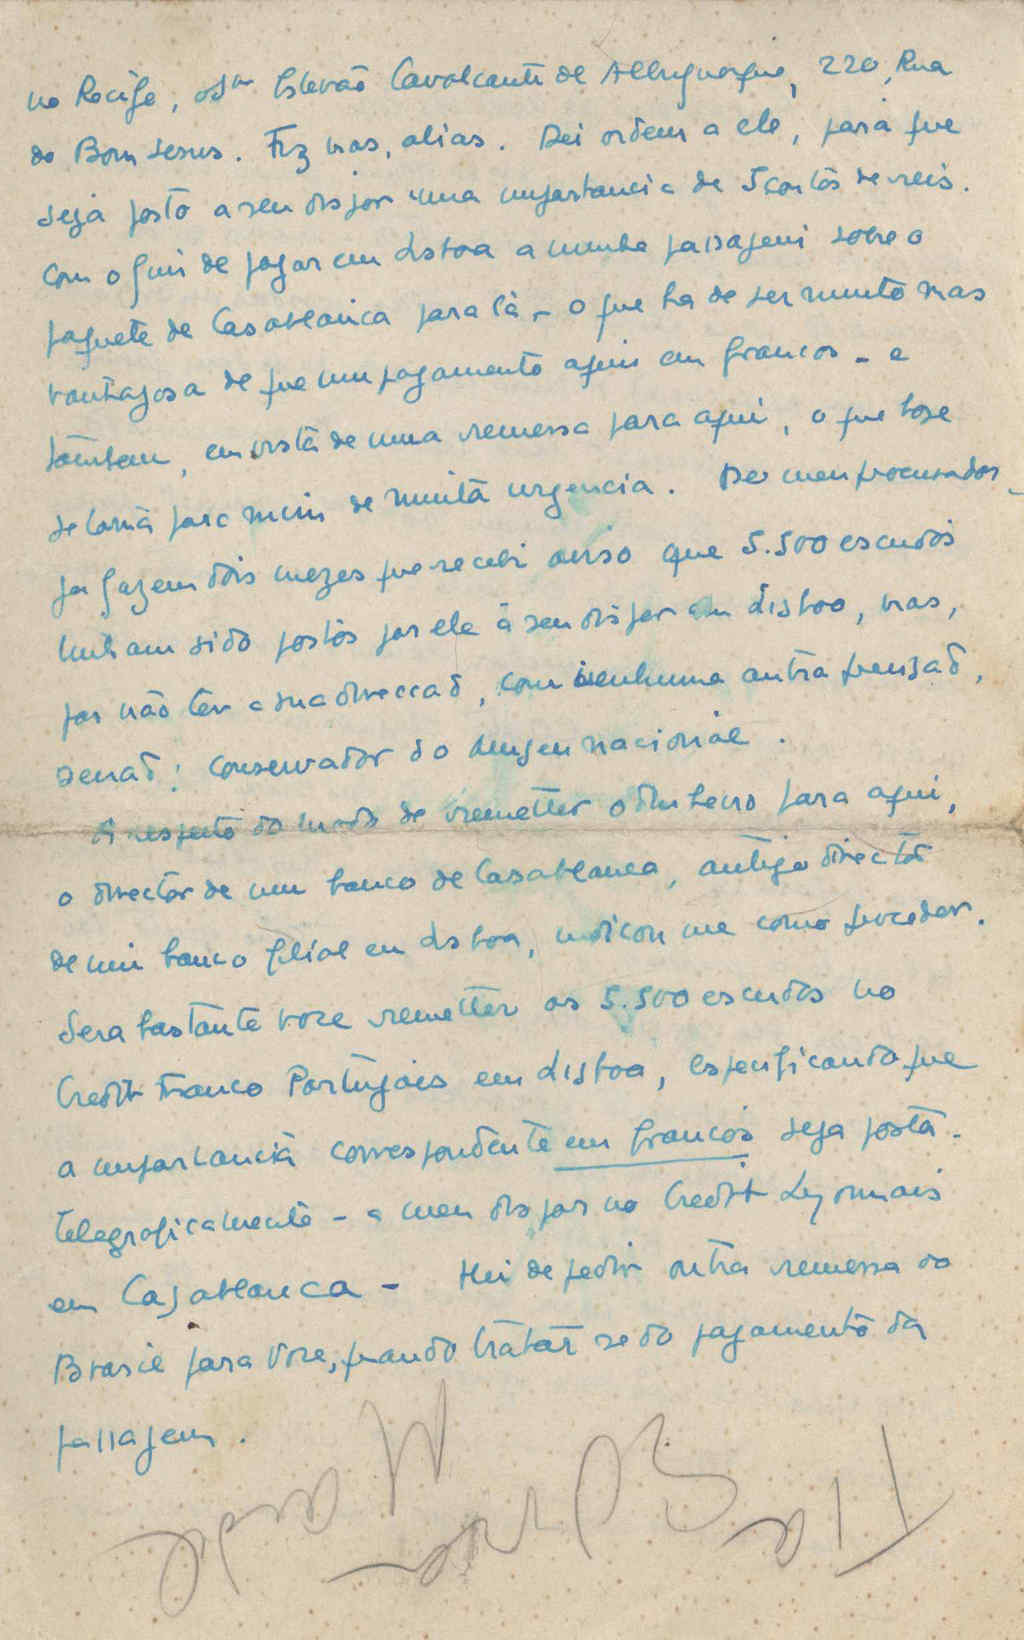 no Recife, o Snr Estevão Cavalcanti de Albuquerque, 220, Rua
do Bom Jesus. Fiz mas, alias. Dei ordem a ele, para que
seja posto a seu dispor uma importancia de 5 contos de reis.
com o fim de pagar em Lisboa a minha passagem sobre o
paquete de Casablanca para lá – o que ha de ser muito mas
vantagosa de que um pagamento aqui em francos – e
tambem, em vista de uma remessa para aqui, o que hoje
se torna para mim de muita urgencia. De meu procurador
ja fazem dois mezes que recebi aviso que 5.500 escudos
tinham sido postos por ele à seu dispor em Lisboa, mas,
por não ter a sua direccaõ, com nenhuma outra precisaõ,
senaõ: conservador do museu nacional.
A respeito do modo de remetter o dinheiro para aqui,
o director de um banco de Casablanca, antigo director
de um banco filial em Lisboa, indicou me como proceder.
Sera bastante voce remetter os 5.500 escudos no
Credit Franco Portugais em Lisboa, especificando que
a importancia correspondente em francos seja posta –
telegraficamente – a meu dispor no Credit Lyonnais
em Casablanca – Hei de pedir outra remessa do
Brasil para voce, quando tratar se do pagamento da
passagem.